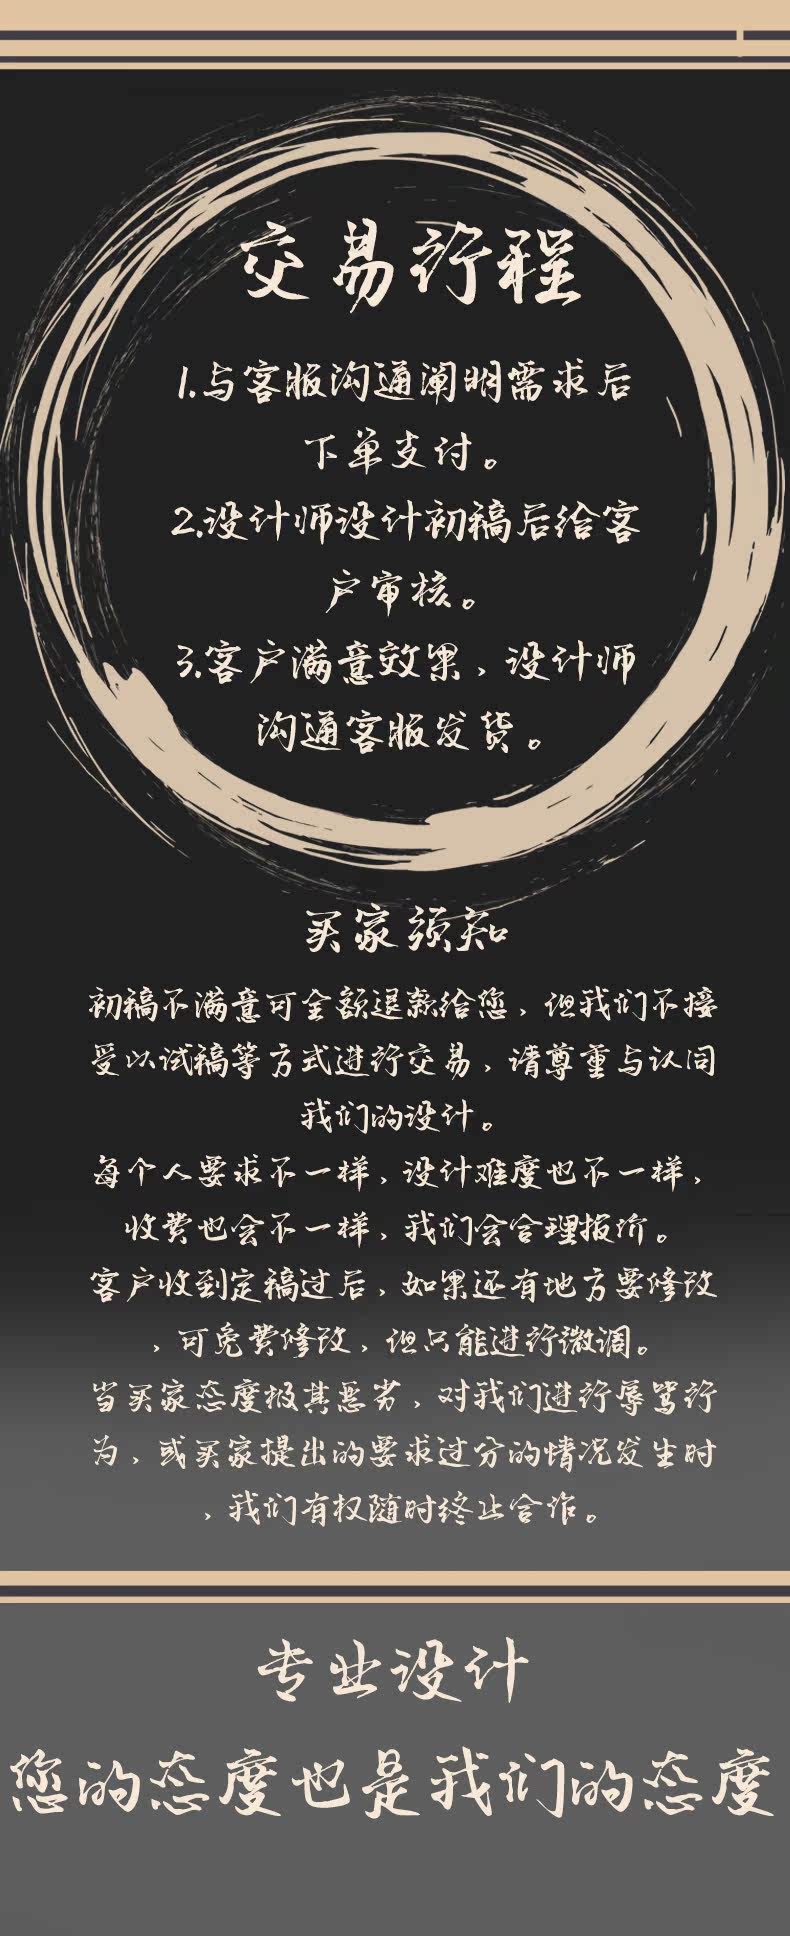 交易行程
1.与客服沟通阐明需求后
下单支付。
2.设计师设计初稿后给客
户审核。
3.客户满意效果，设计师
沟通客服发货。
买家须知
初稿不满意可全额退款给您，但我们不接
受以试稿等方式进行交易，请尊重与认同
我们的设计。
每个人要求不一样，设计难度也不一样，
收费也会不一样，我们会合理报价。
客户收到定稿过后，如果还有地方要修改
，可免费修改，但只能进行微调。
当买家态度极其恶劣，对我们进行辱骂行
为，或买家提出的要求过分的情况发生时
，我们有权随时终止合作。
专业设计
您的态度也是我们的态度